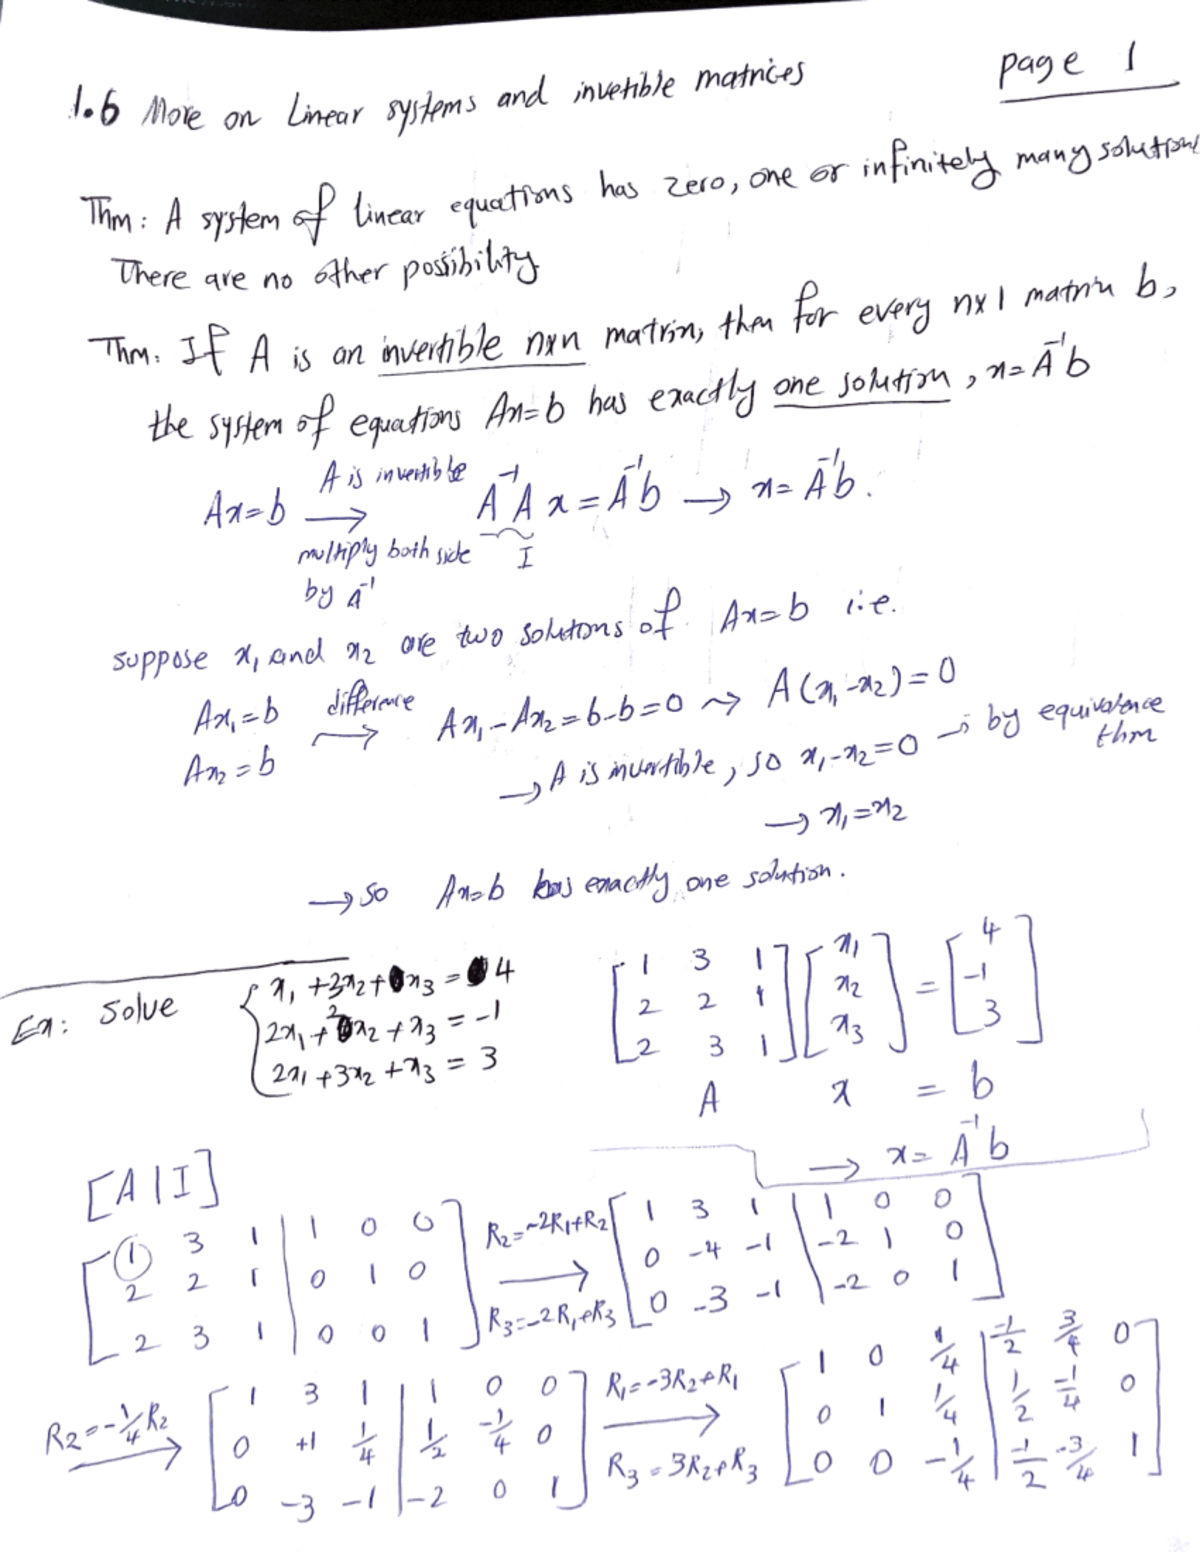 1.6 More on Linear systems and invetible matrices
page 1
Thm: A system of linear equations has zero, one or infinitely many solutions
There are no other possibility
Thm: If A is an invertible nxn matrix, then for every nx1 matrix b,
the system of equations Ax=b has exactly one solution, x=A⁻¹b
Ax=b → A is invertible multiply both side by A⁻¹ A⁻¹A x = A⁻¹b → x = A⁻¹b.
I
suppose x₁ and x₂ are two solutions of Ax=b i.e.
Ax₁=b difference → Ax₁-Ax₂=b-b=0 ⤳ A(x₁-x₂)=0
Ax₂=b
→ A is invertible, so x₁-x₂=0 → by equivalence thm
→ x₁=x₂
→ so Ax=b has exactly one solution.
Ex: Solve
x₁+3x₂+x₃=4
2x₁+2x₂+x₃=-1
2x₁+3x₂+x₃=3
[1 3 1] [x₁] = [4]
[2 2 1] [x₂] [-1]
[2 3 1] [x₃] [3]
A x = b
→ x = A⁻¹b
[A|I]
[1 3 1 | 1 0 0]
[2 2 1 | 0 1 0]
[2 3 1 | 0 0 1]
R₂=-2R₁+R₂
→
R₃=-2R₁+R₃
[1 3 1 | 1 0 0]
[0 -4 -1 | -2 1 0]
[0 -3 -1 | -2 0 1]
R₂=-1/4R₂
→
[1 3 1 | 1 0 0]
[0 +1 1/4 | 1/2 -1/4 0]
[0 -3 -1 | -2 0 1]
R₁=-3R₂+R₁
→
R₃=3R₂+R₃
[1 0 1/4 | -1/2 3/4 0]
[0 1 1/4 | 1/2 -1/4 0]
[0 0 -1/4 | -1/2 -3/4 1]